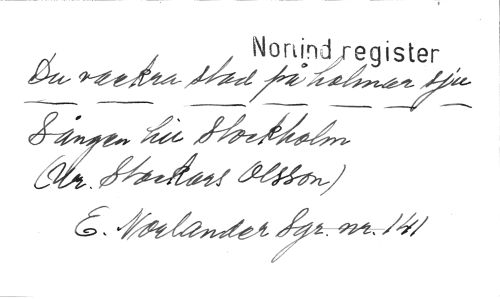 Norlind register
Du vackra stad på holmar sju
Sången till Stockholm
(Ur. Stackars Olsson)
E. Norlander Sgr. nr. 141